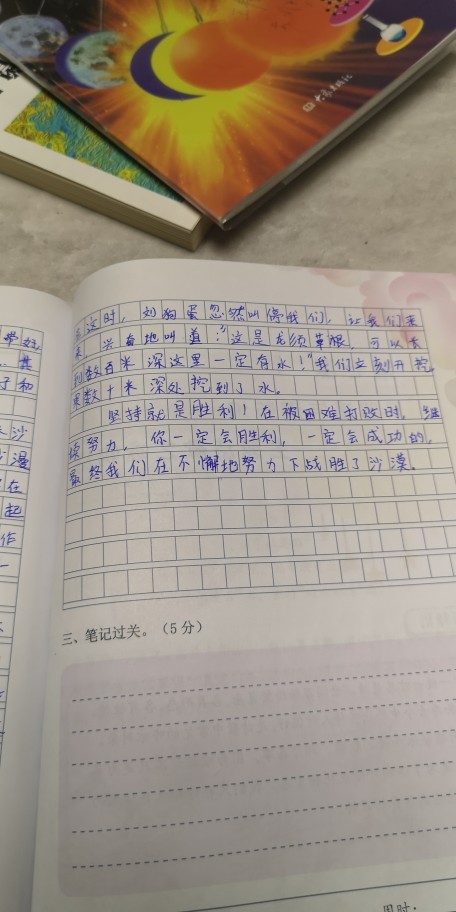 这时，刘狗蛋忽然叫停我们，让我们来
，兴奋地叫道：“这是龙须草根，可以长
到数百米深这里一定有水！”我们立刻开挖，
果数十米深处挖到了水。
坚持就是胜利！在被困难打败时，继
续努力，你一定会胜利，一定会成功的，
最终我们在不懈地努力下战胜了沙漠。
三、笔记过关。（5分）
了和
沙
漫
在
起
作
一
用时：